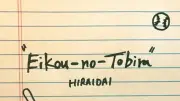 "Eikou-no-Tobira"
HIRAIDAI